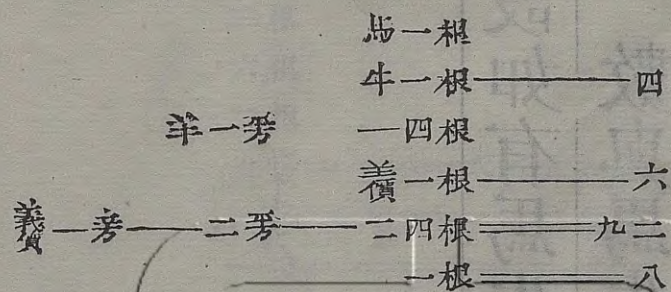 馬一根
牛一根━━四
羊一 一四根
一根━━六
一 ━━二 ━━二四根━━九二
一根━━八